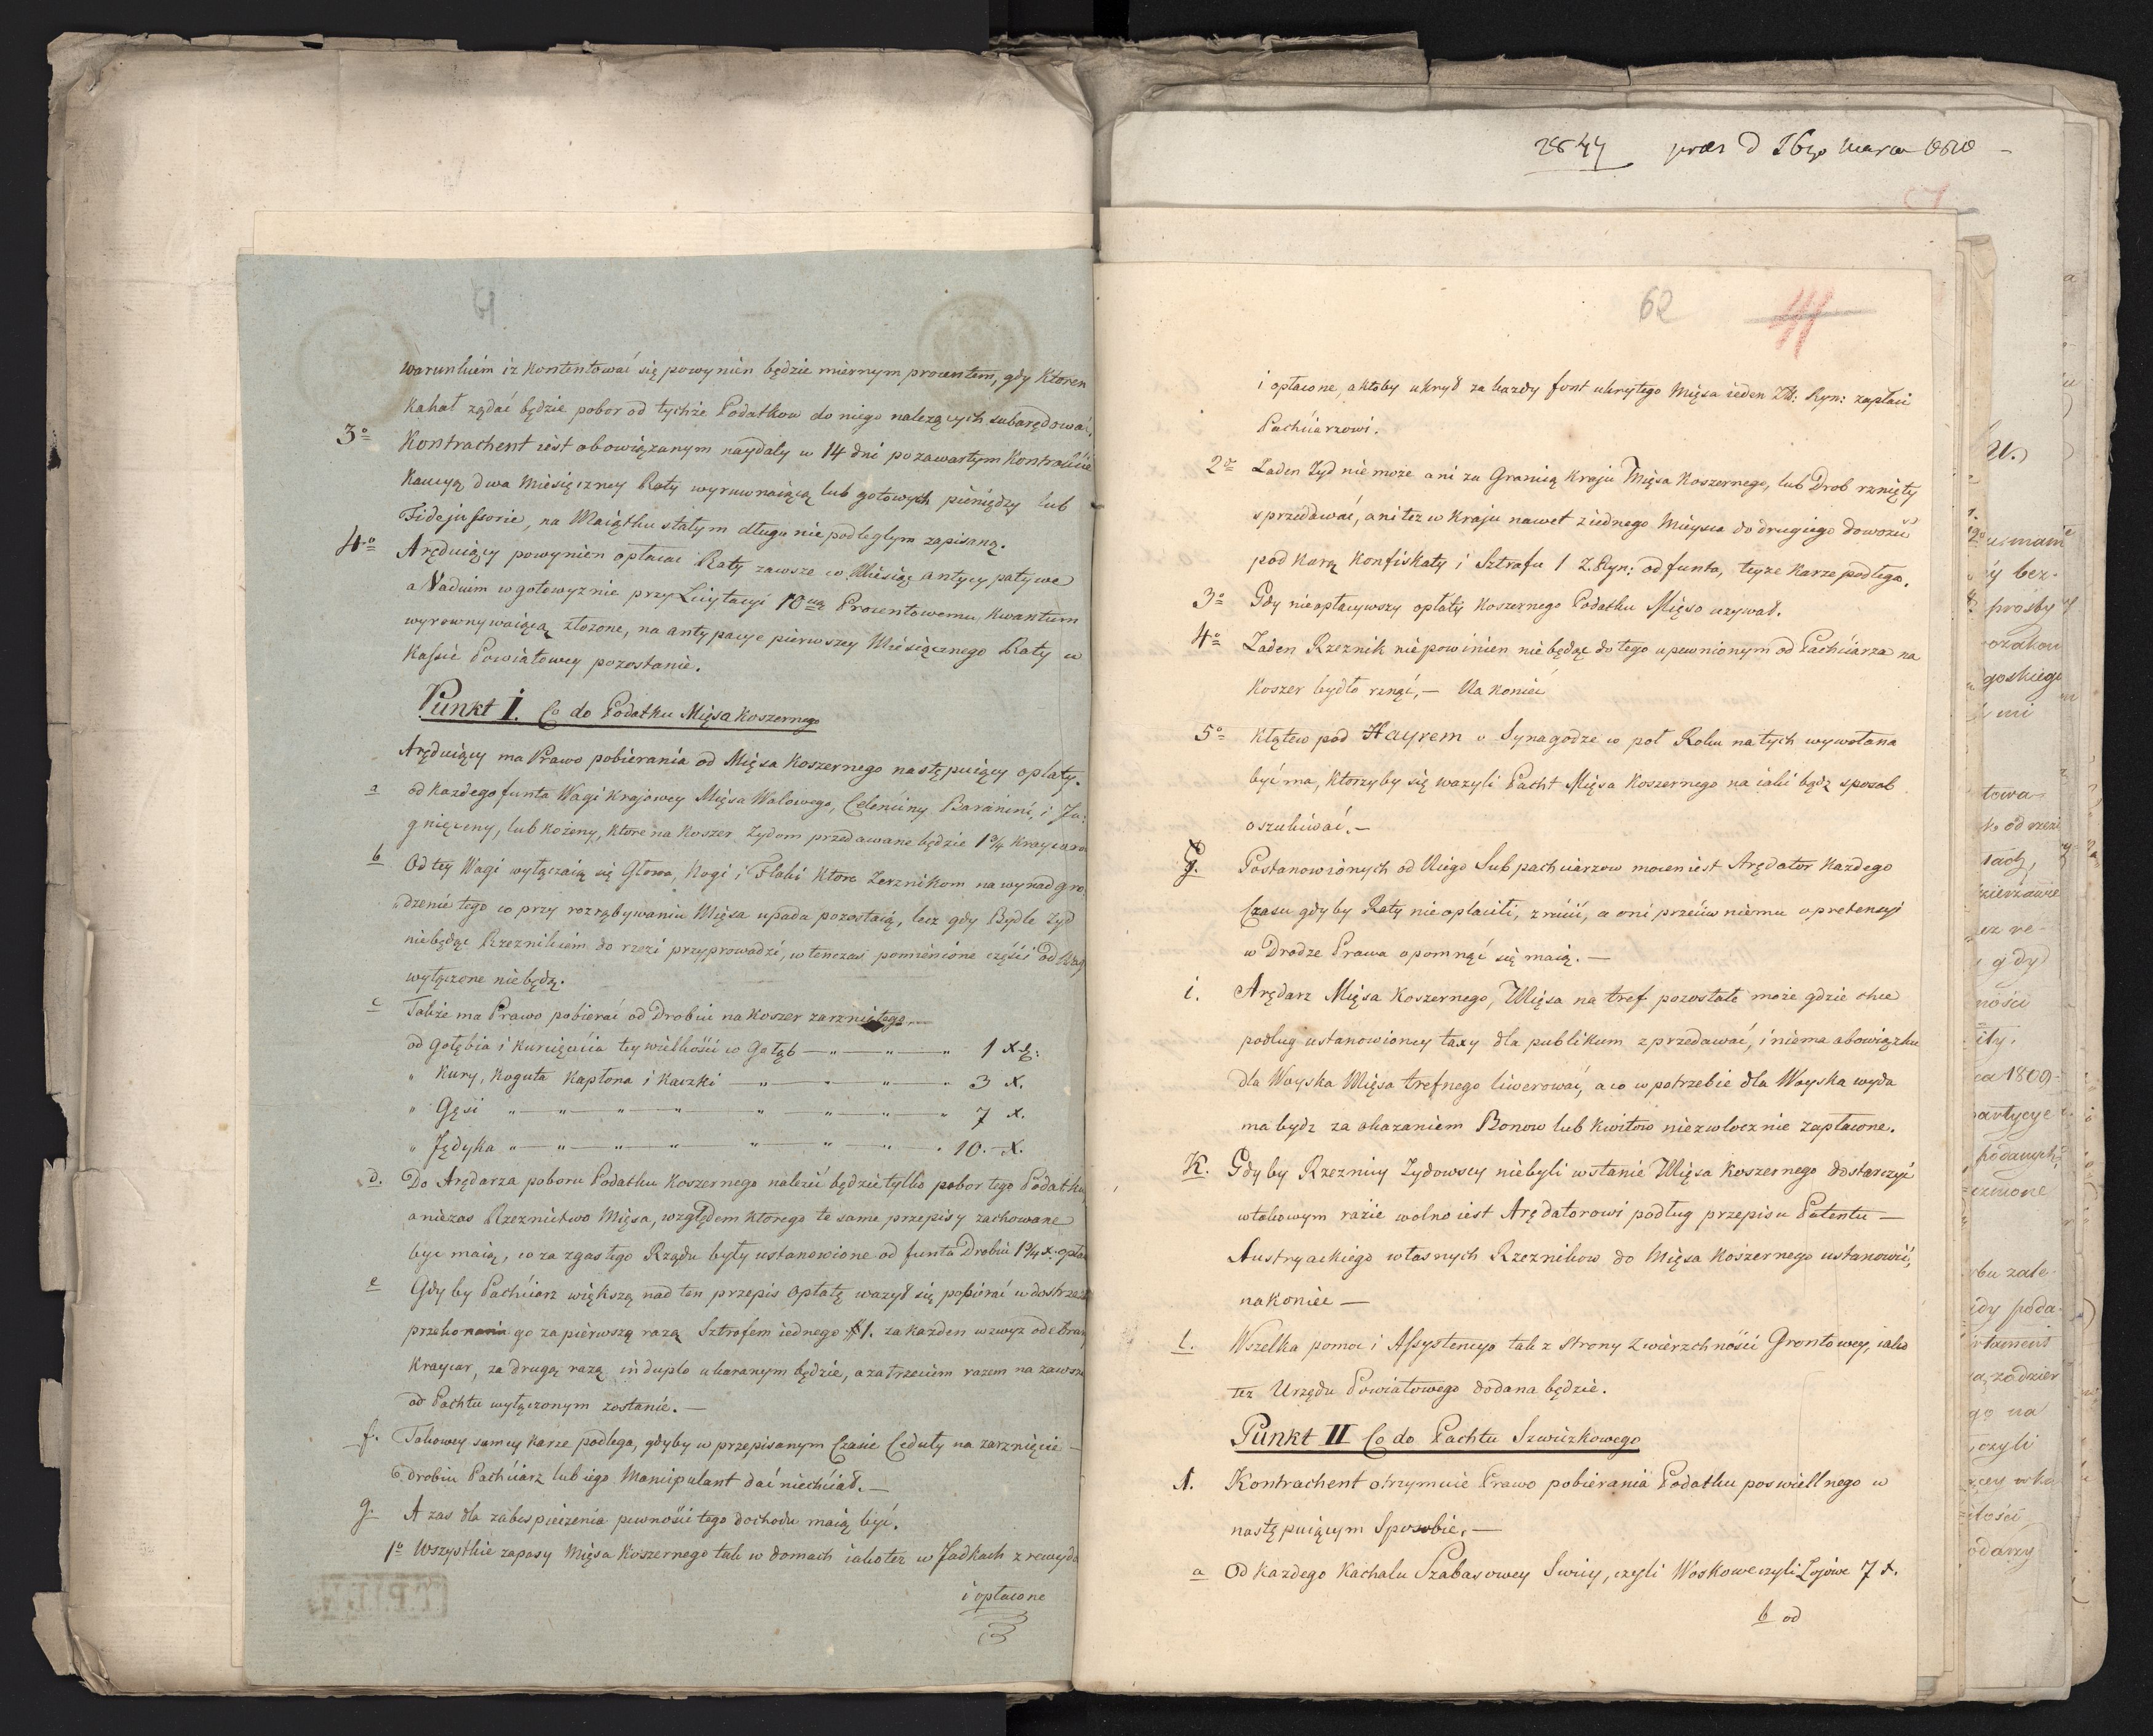 warunkiem iz kontentować się powynien będzie miernym procentem, gdy Ktoren
Kahał ządać będzie pobor od tychże Podatkow do niego nalezących subarędować.
3o Kontrachent iest obowiązanym naydaly w 14 dni po zawartym Kontrakcie
Kaucyą dwa Miesięczney Raty wyruwnaiącą lub gotowych pieniędzy lub
Fidejussorie, na Maiątku stałym długu nie podległym zapisaną.
4o Aręduiący powynien opłacac Raty zawsze co Miesiąc antycypatywe
a Vadium w gotowyznie przy Licytacyi 10ną Procentowemu Kwantum
wyrownywaiącą złozone, na antypacye pierwszey Miesięcznego Raty w
Kassie Powiatowey pozostanie.
Punkt I. Co do Podatku Mięsa Koszernego
Aręduiący ma Prawo pobierania od Mięsa Koszernego następuiący opłaty.
a od kazdego funta Wagi Krajowey Mięsa Wałowego, Celenciny Baranini, i Ja:
gnięciny, lub Kozeny, które na Koszer Zydom przedawane będzie 1 3/4 Kraycara
b Od tey Wagi wyłączaią się Głowa, Nogi i Flaki Ktore Zerznikom na wynadgro
dzenie tego co przy rozrąbywaniu Mięsa upada pozostaią, lecz gdy Bydle Zyd
niebędąc Rzeznikiem do rzezi przyprowadzi, w tenczas pomienione części od Wagi
wyłączone niebędą.
c Takze ma Prawo pobierać od Drobiu na Koszer zarzniętego
od Gołębia i Kurcięcia tey wielkości co Gołąb — " — " — " 1 x
" Kury, Koguta Kapłona i Kaczki — " — " — " — " 3 x.
" Gęsi " — " — " — " — " — " — " 7 x.
" Jędyka " — " — " — " — " — " — " 10. x.
d. Do Arędarza poboru Podatku Koszernego nalezeć będzie tylko pobor tego Podatku
a niezas Rzeznictwo Mięsa, względem Ktorego te same przepisy zachowane
byc maią, co za zgasłego Rządu były ustanowione od funta Drobiu 1 3/4 x.
e Gdyby Pachciarz większą nad ten przepis Opłatę wazył się pobierać
go za pierwszą razą Sztrafem iednego 1. za kazden wzwyz odebrany
Kraycar, za drugą razą in duplo ukaranym będzie, a za trzeciem razem na zawsze
od Pachtu wyłączonym zostanie. —
f. Takowey samey Karze podlega, gdyby w przepisanym Czasie Ceduły na zarznięcie —
drobiu Pachciarz lub iego Manipulant dać niechciał. —
g. A zas dla zabespieczenia pewności tego dochodu maią być.
1o Wszystkie zapasy Mięsa Koszernego tak w domach iako tez w Jadkach
i opłacone
62
i opłacone, a ktoby ukrył za kazdy font ukrytego Mięsa ieden Zł: Ryn: zapłaci
Pachciarzowi.
2o Zaden Zyd nie moze ani za Granicą Kraju Mięsa Koszernego, lub Drob rznięty
sprzedawać, ani tez w Kraju nawet z iednego Mieysca do drugiego dowozić
pod Karą Konfiskaty i Sztrafu 1 Z. Ryn: od funta, teyze Karze podlega.
3o Gdy nieopłacywszy opłaty Koszernego Podatku Mięso uzywał.
4o Zaden Rzeznik nie powinien nie będąc do tego upewnionym od Pachciarza na
Koszer bydło rznąć, — Na koniec
5o Klątew pod Hayrem w Synagodze co poł Roku na tych wywołana
być ma, Ktorzyby się wazyli Pacht Mięsa Koszernego na iaki bądz sposob
oszukiwać. —
Postanowionych od Niego Subpachciarzow mocen iest Arędator Kazdego
Czasu gdyby Raty nie opłacili, zrucić, a oni przeciw niemu o pretensyi
w Drodze Prawa opomnąć się maią. —
i. Arędarz Mięsa Koszernego, Mięsa na tref pozostałe moze gdzie chce
podług ustanowioney taxy dla publikum zprzedawać, i niema obowiązku
dla Woyska Mięsa trefnego liwerować, a co w potrzebie dla Woyska wyda
ma bydz za okazaniem Bonow lub Kwitow niezwłocznie zapłacone.
K. Gdyby Rzeznicy Zydowscy niebyli wstanie Mięsa Koszernego dostarczyć
w takowym razie wolno iest Arędatorowi podług przepisu Patentu —
Austryackiego własnych Rzeznikow do Mięsa Koszernego ustanowić,
nakoniec —
l. Wszelka pomoc i Assystencya tak z strony Zwierzchności Grontowey, iako
tez Urzędu Powiatowego dodana będzie.
Punkt II Co do Pachtu Szwiczkowego
1. Kontrachent otrzymuie Prawo pobierania Podatku poswiellnego w
następuiącym Sposobie. —
a Od kazdego Kachalu Szabasowey Swicy, czyli Woskowe czyli Łojowe 7 x.
b od